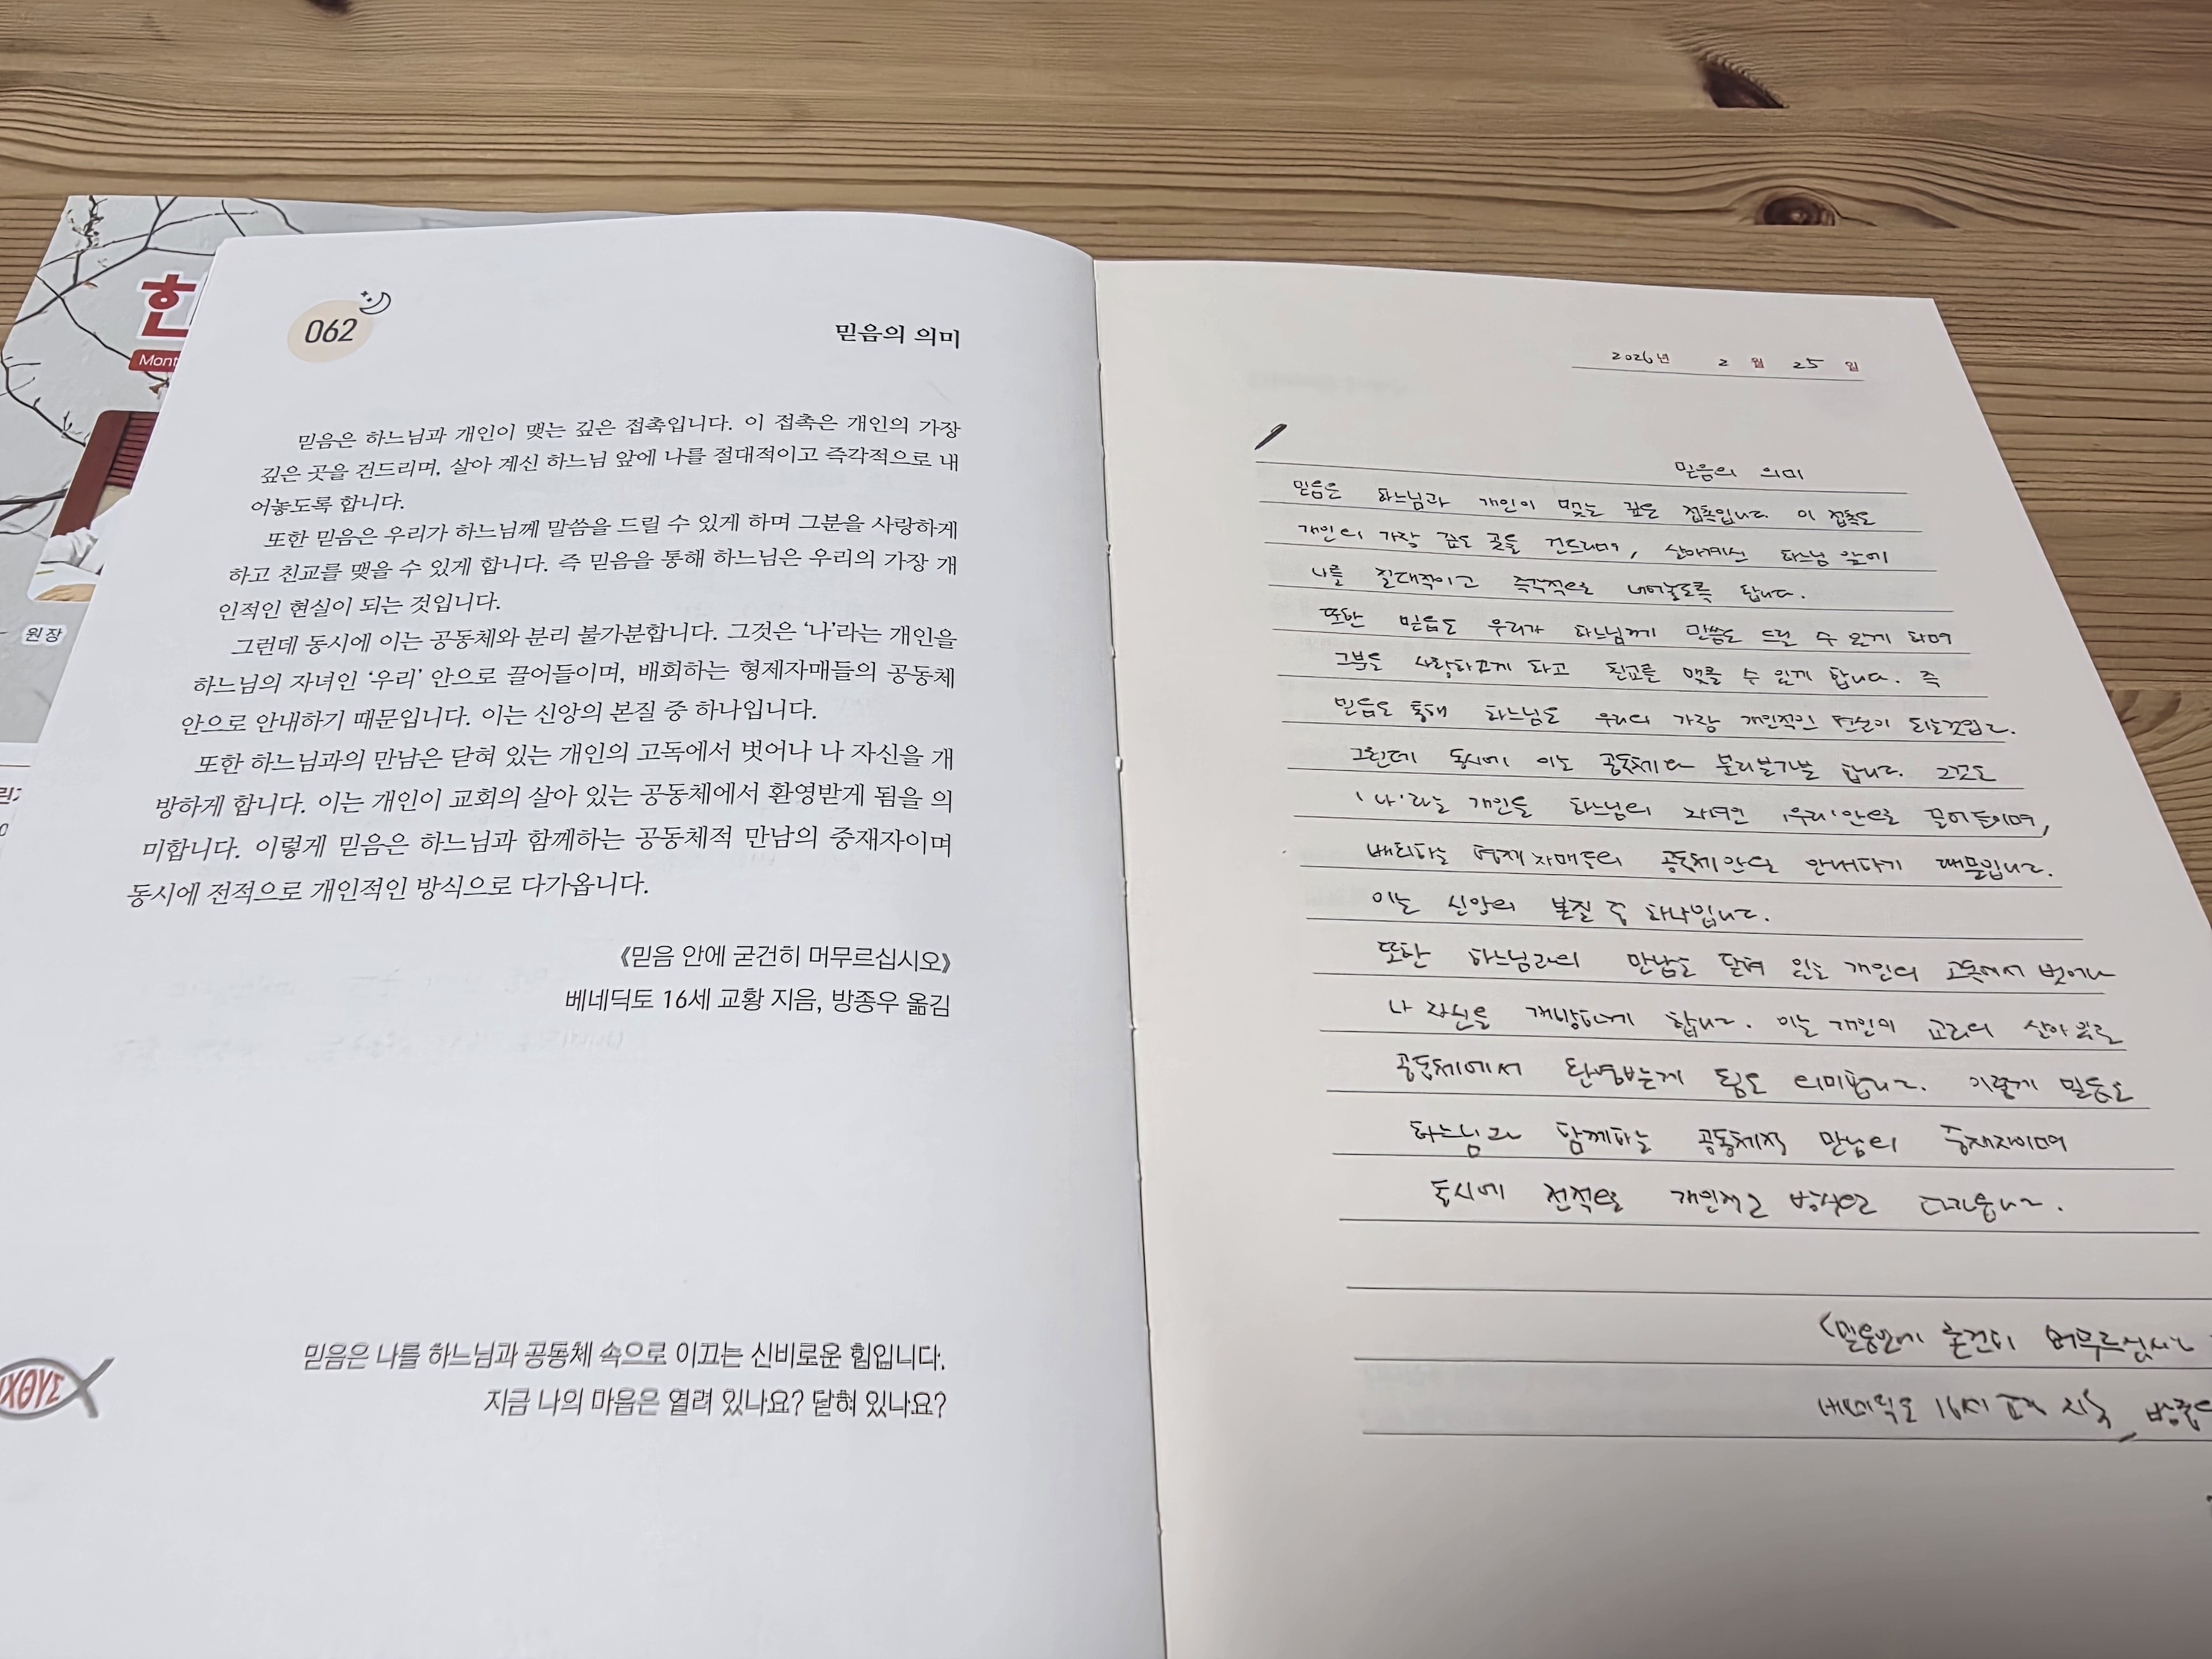 한
Mont
원장
062
믿음의 의미
믿음은 하느님과 개인이 맺는 깊은 접촉입니다. 이 접촉은 개인의 가장
깊은 곳을 건드리며, 살아 계신 하느님 앞에 나를 절대적이고 즉각적으로 내
어놓도록 합니다.
또한 믿음은 우리가 하느님께 말씀을 드릴 수 있게 하며 그분을 사랑하게
하고 친교를 맺을 수 있게 합니다. 즉 믿음을 통해 하느님은 우리의 가장 개
인적인 현실이 되는 것입니다.
그런데 동시에 이는 공동체와 분리 불가분합니다. 그것은 ‘나’라는 개인을
하느님의 자녀인 ‘우리’ 안으로 끌어들이며, 배회하는 형제자매들의 공동체
안으로 안내하기 때문입니다. 이는 신앙의 본질 중 하나입니다.
또한 하느님과의 만남은 닫혀 있는 개인의 고독에서 벗어나 나 자신을 개
방하게 합니다. 이는 개인이 교회의 살아 있는 공동체에서 환영받게 됨을 의
미합니다. 이렇게 믿음은 하느님과 함께하는 공동체적 만남의 중재자이며
동시에 전적으로 개인적인 방식으로 다가옵니다.
《믿음 안에 굳건히 머무르십시오》
베네딕토 16세 교황 지음, 방종우 옮김
믿음은 나를 하느님과 공동체 속으로 이끄는 신비로운 힘입니다.
지금 나의 마음은 열려 있나요? 닫혀 있나요?
ΙΧΘΥΣ
2026년 2 월 25 일
믿음의 의미
믿음은 하느님과 개인이 맺는 깊은 접촉입니다 이 접촉은
개인의 가장 깊은 곳을 건드리며, 살아계신 하느님 앞에
나를 절대적이고 즉각적으로 내어놓도록 합니다.
또한 믿음은 우리가 하느님께 말씀을 드릴 수 있게 하며
그분을 사랑하게 하고 친교를 맺을 수 있게 합니다. 즉
믿음을 통해 하느님은 우리의 가장 개인적인 현실이 되는것입니다.
그런데 동시에 이는 공동체와 분리불가분 합니다. 그것은
'나'라는 개인을 하느님의 자녀인 '우리'안으로 끌어들이며,
배회하는 형제자매들의 공동체안으로 안내하기 때문입니다.
이는 신앙의 본질 중 하나입니다.
또한 하느님과의 만남은 닫혀 있는 개인의 고독에서 벗어나
나 자신을 개방하게 합니다. 이는 개인이 교회의 살아 있는
공동체에서 환영받는게 됨을 의미합니다. 이렇게 믿음은
하느님과 함께하는 공동체적 만남의 중재자이며
동시에 전적으로 개인적인 방식으로 다가옵니다.
<믿음안에 굳건히 머무르십시오
베네딕토 16세 교황 지음, 방종우